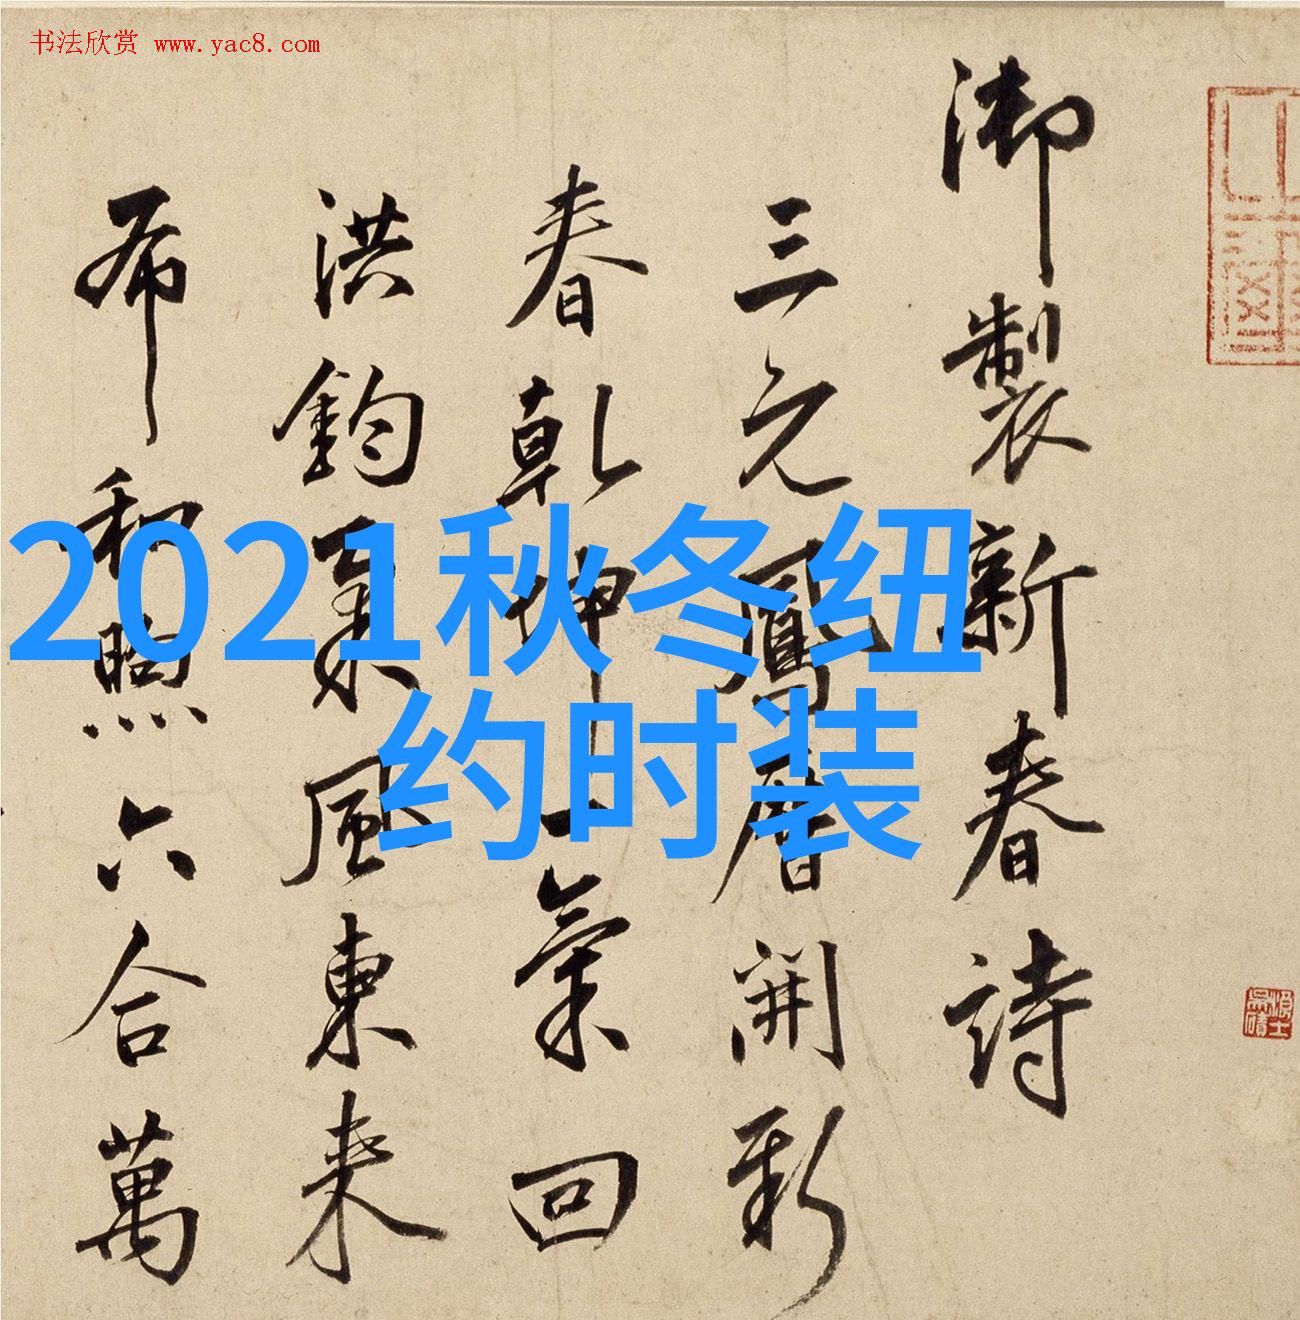 书法欣赏 www.yac8.com
御製新春詩
三元鳳曆開新
春乾坤一氣回
洪鈞風東来
布和煦六合萬
2021秋冬纽
约时装